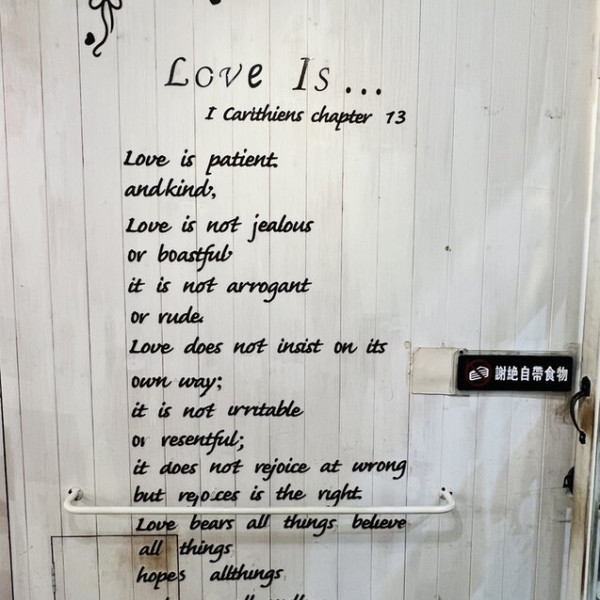 Love Is...
I Carithiens chapter 13
Love is patient.
andkind,
Love is not jealous
or boastful
it is not arrogant
or rude.
Love does not insist on its
own way;
it is not irritable
or resentful;
it does not rejoice at wrong
but rejoices is the right.
Love bears all things believe
all things
hopes allthings
謝絕自帶食物